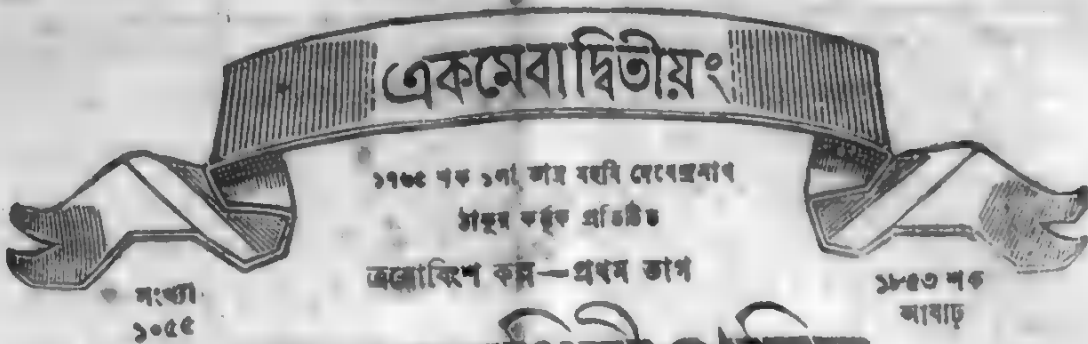 একমেবাদ্বিতীয়ং
১৭৬৫ শক ১লা ভাদ্র মহর্ষি দেবেন্দ্রনাথ
ঠাকুর কর্ত্তৃক প্রতিষ্ঠিত
ত্রয়োবিংশ কল্প—প্রথম ভাগ
সংখ্যা
১০৫৫
১৮৫৩ শক
আষাঢ়